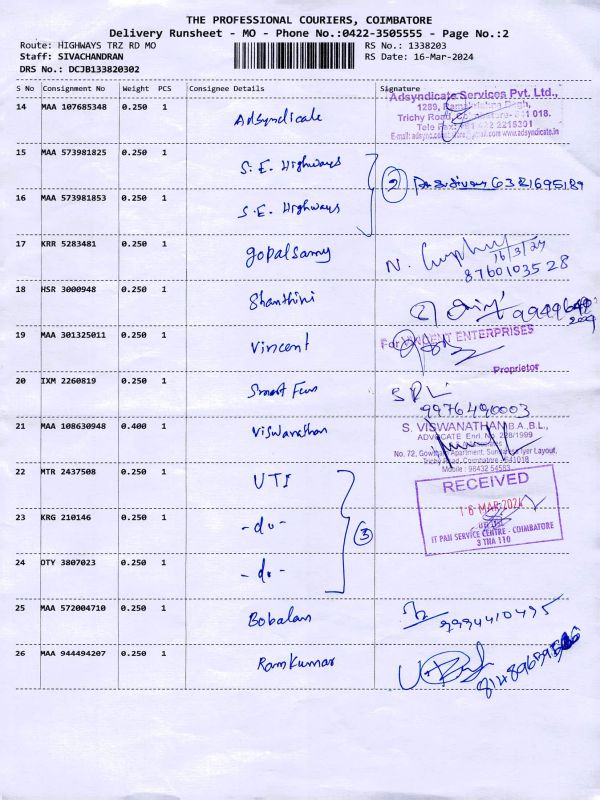 THE PROFESSIONAL COURIERS, COIMBATORE
Delivery Runsheet - MO - Phone No.:0422-3505555 - Page No.:2
Route: HIGHWAYS TRZ RD MO RS No.: 1338203
Staff: SIVACHANDRAN RS Date: 16-Mar-2024
DRS No.: DCJB133820302
S No Consignment No Weight PCS Consignee Details Signature
14 MAA 107685348 0.250 1 Adsyndicate
Adsyndicate Services Pvt. Ltd.,
1289,
Trichy Road, 018.
Tele Fax:
www.adsyndicate.in
15 MAA 573981825 0.250 1 S.E. Highways
② 6381695189
16 MAA 573981853 0.250 1 S.E. Highways
17 KRR 5283481 0.250 1 gopalsamy
N.
16/3/24
8760103528
18 HSR 3000948 0.250 1 Shanthini
19 MAA 301325011 0.250 1 Vincent
For ENTERPRISES
Proprietor
20 IXM 2260819 0.250 1 Smart Fun
9976490003
21 MAA 108630948 0.400 1 Viswanathan
S. VISWANATHAN B.A.,B.L.,
ADVOCATE Enrl. No. /1999
No. 72, Apartment, Layout,
Trichy Road, Coimbatore - 641018
Mobile : 98432 54563
22 MTR 2437508 0.250 1 UTI
RECEIVED
16 MAR 2024
IT PAN SERVICE CENTRE - COIMBATORE
23 KRG 210146 0.250 1 -do-
③
24 OTY 3807023 0.250 1 -do-
25 MAA 572004710 0.250 1 Bobalan
9994410495
26 MAA 944494207 0.250 1 Ramkumar